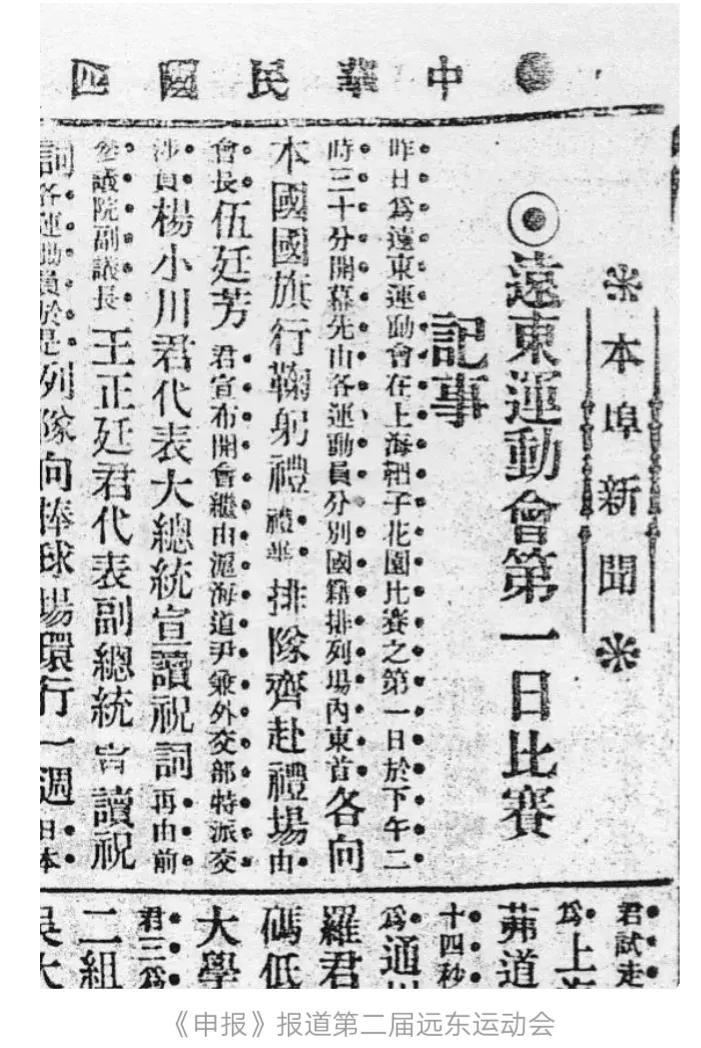 中華民國四
本埠新聞
遠東運動會第一日比賽
記事
昨日爲遠東運動會在上海靶子花園比賽之第一日於下午二
時三十分開幕先由各運動員分別國籍排列場內東首各向
本國國旗行鞠躬禮禮畢排隊齊赴禮場由
會長伍廷芳君宣布開會繼由滬海道尹兼外交部特派交
涉員楊小川君代表大總統宣讀祝詞再由前
參議院副議長王正廷君代表副總統宣讀祝
詞各運動員於是列隊向棒球場環行一週日本
君試走
爲上海
茀道
十四秒
爲通州
羅君
碼低
大學
君三爲
二組
吳大
《申报》报道第二届远东运动会